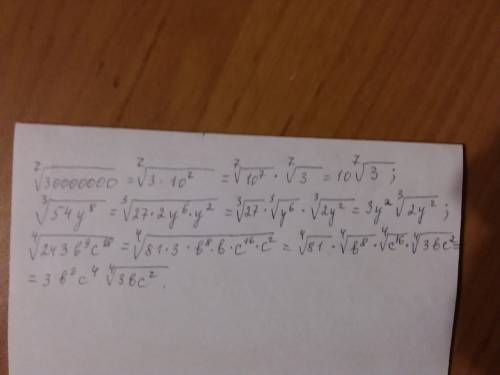 ⁷√30000000 = ⁷√3·10⁷ = ⁷√10⁷ · ⁷√3 = 10 ⁷√3 ;
³√54y⁸ = ³√27·2y⁶·y² = ³√27·³√y⁶·³√2y² = 3y² ³√2y² ;
⁴√243b⁹c¹⁸ = ⁴√81·3·b⁸·b·c¹⁶·c² = ⁴√81·⁴√b⁸·⁴√c¹⁶·⁴√3bc² =
= 3b²c⁴ ⁴√3bc² .